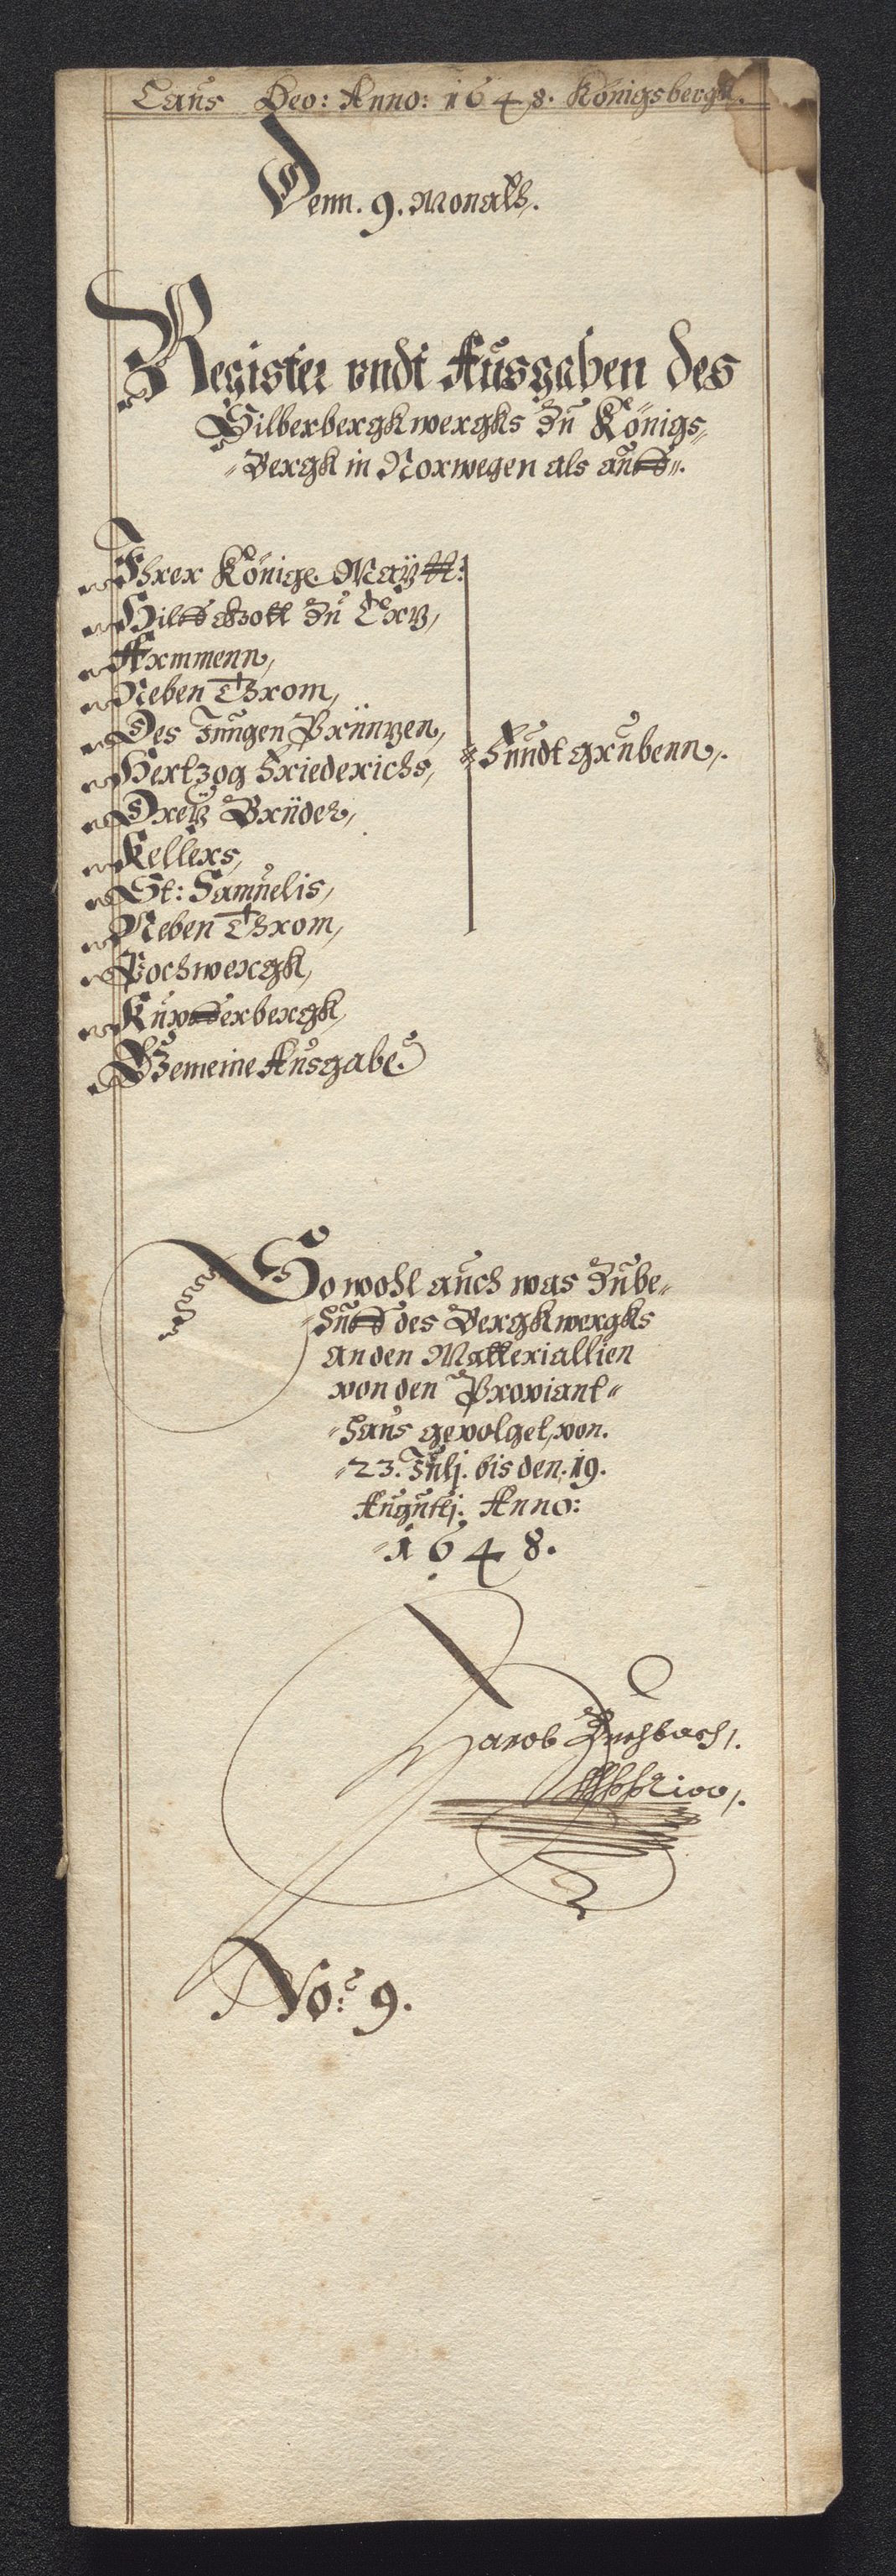 Laus Deo: Anno: 1648. Königsbergk.
Denn. 9. Monath.
Register vndt Ausgaben des
Silberbergkwergks Zu Königs-
Bergk in Norwegen als auff.
Ihrer Könige. Maÿtt:
Hilff Gottes Zu
Armmenn,
Neben Throm,
Des Jungen Prüntzen,
Hertzog Friederichs,
Dreÿ Brüder,
Kellers,
St: Samuelis,
Neben Throm,
Fundtgrubenn,.
Pochwergk,
Kupfferbergk,
Gemeine Ausgabe.
So wohl auch was Zu be-
huff des Bergkwergks
an den Matteriallien
von den Proviant-
haus gevolget, von.
23. Julj. bis den. 19.
Augustj. Anno:
1648.
Jacob
No: 9.